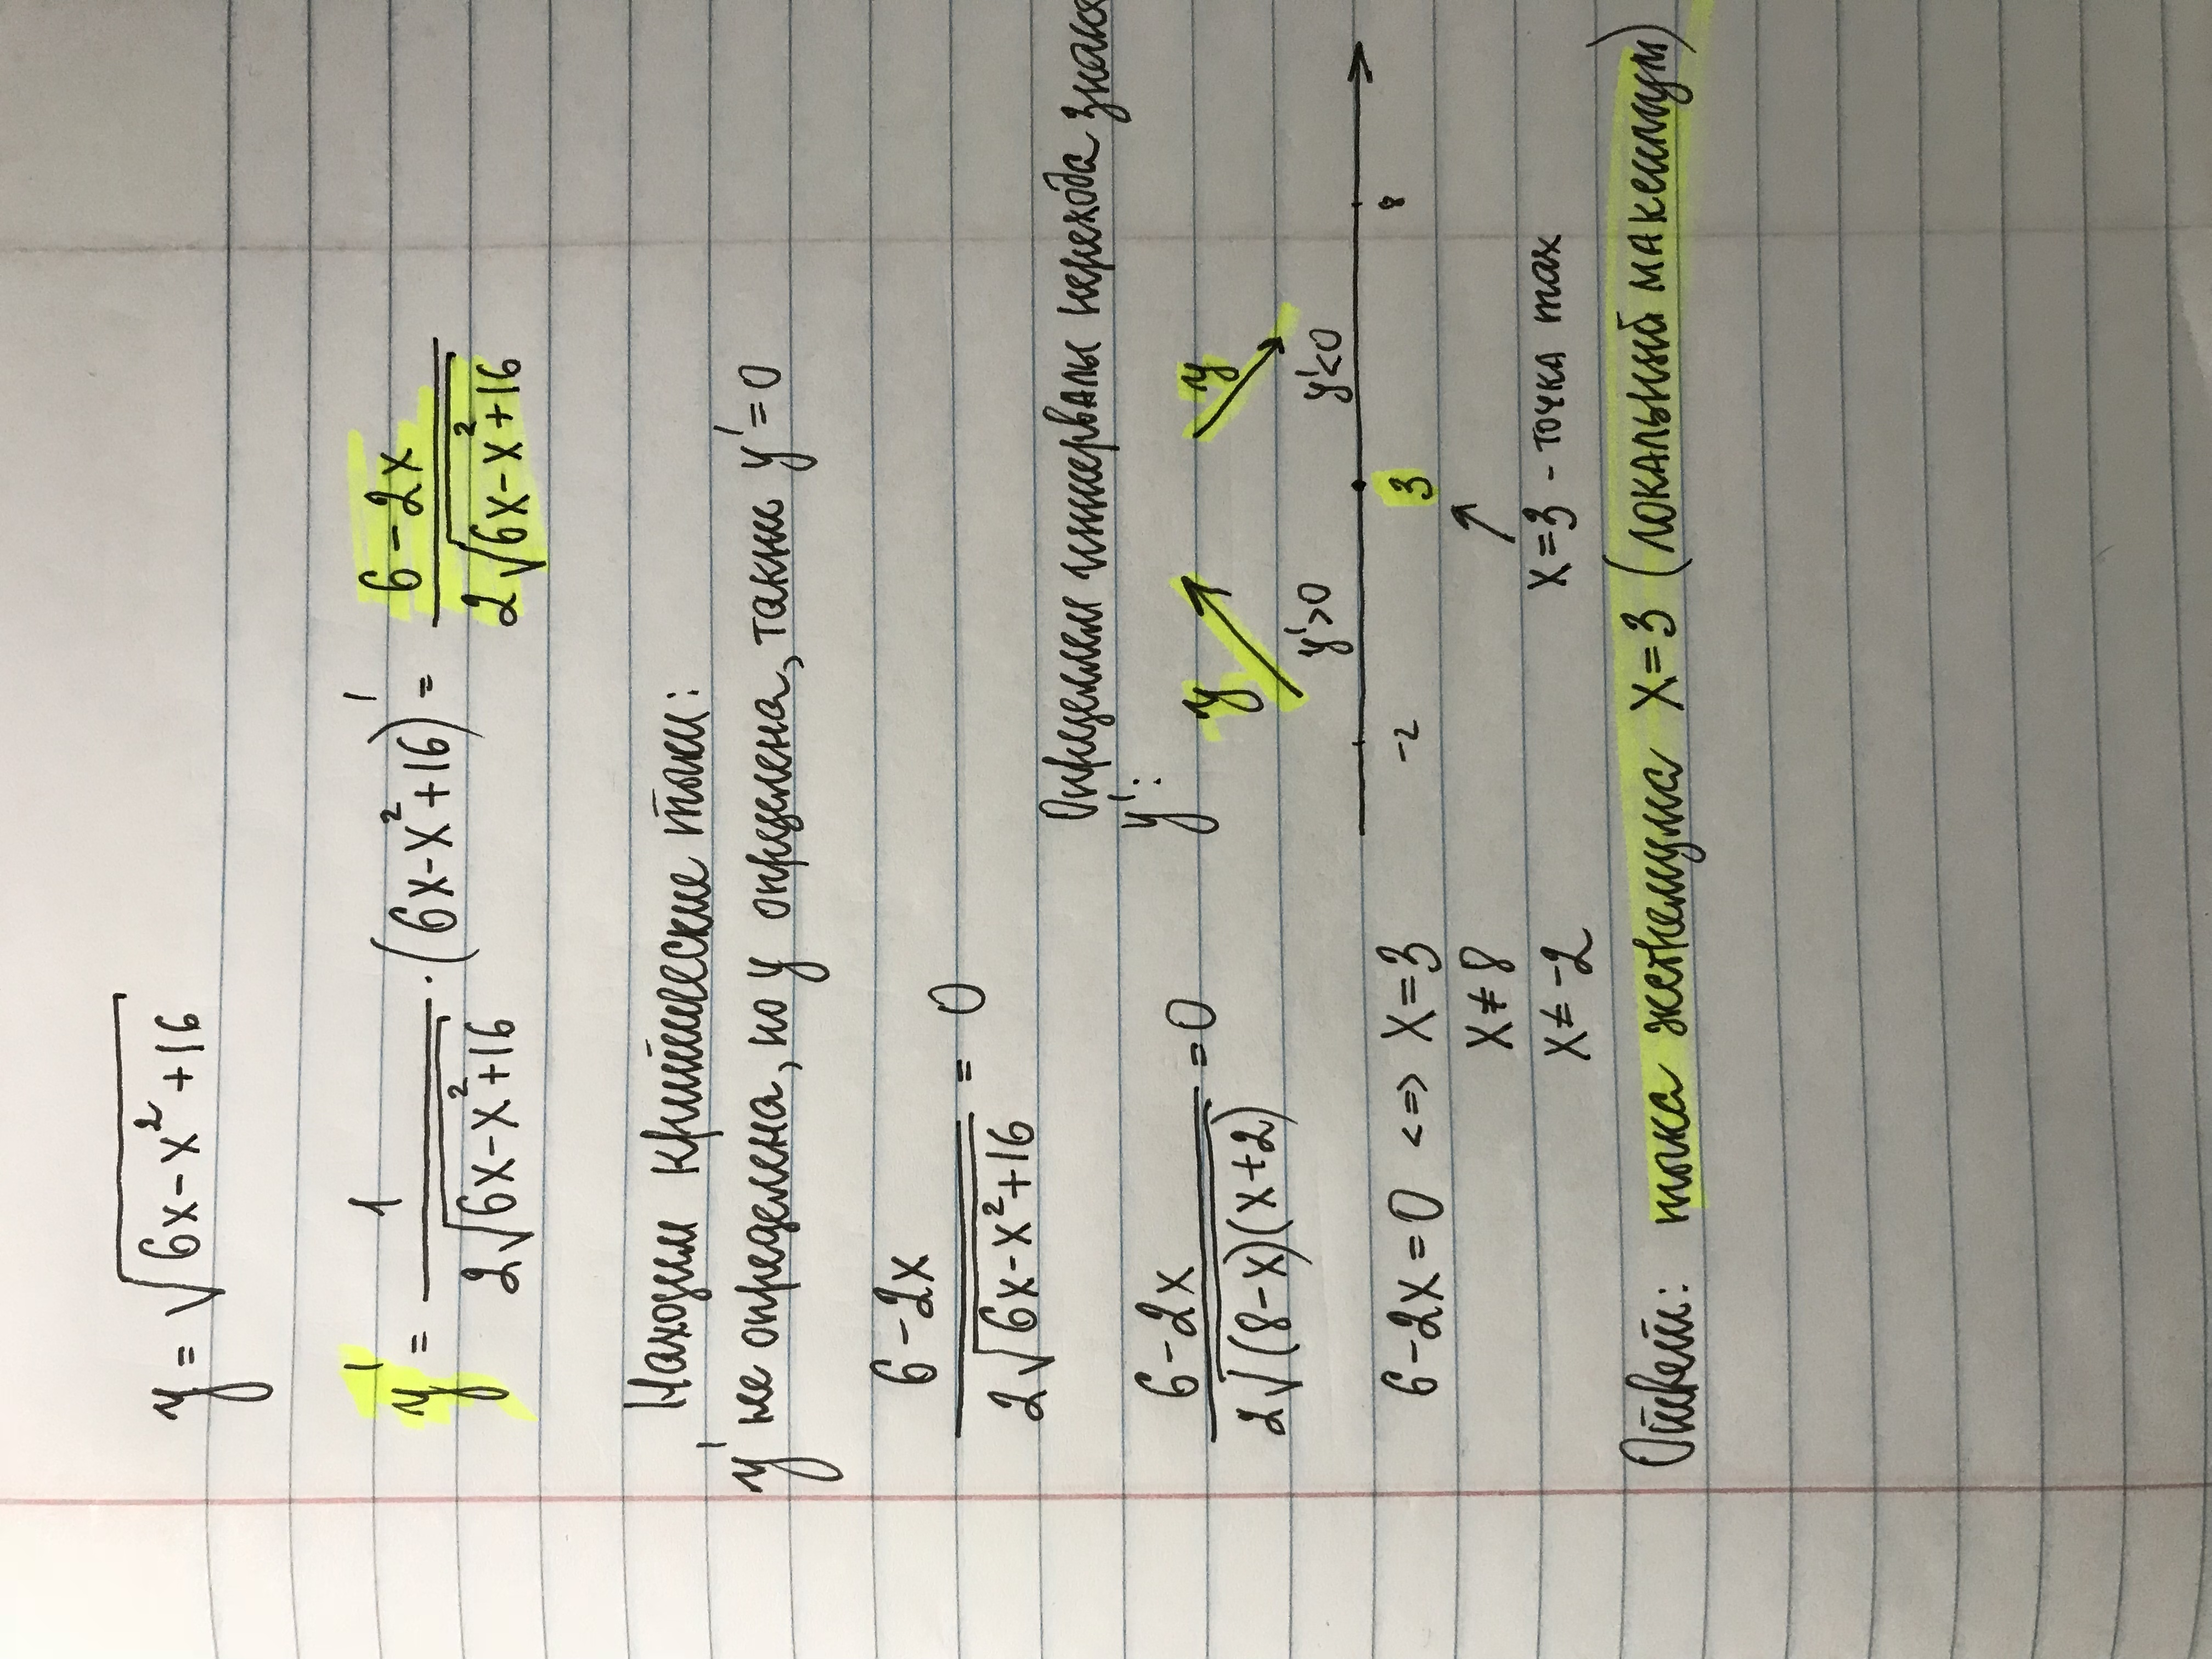 y = √(6x-x²+16)
y' = 1/(2√(6x-x²+16)) · (6x-x²+16)' = (6-2x)/(2√(6x-x²+16))
Находим критические точки:
y' не определена, но y определена, также y'=0
(6-2x)/(2√(6x-x²+16)) = 0
Определяем интервалы перехода знака
y':
(6-2x)/(2√((8-x)(x+2))) = 0
y y
y'>0 y'<0
-2 3 8
6-2x=0 <=> x=3
x≠8
x≠-2
x=3 - точка max
Ответ: точка экстемума x=3 (локальный максимум)